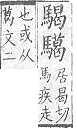 騔
居曷切
馬疾走
也或从
葛文二